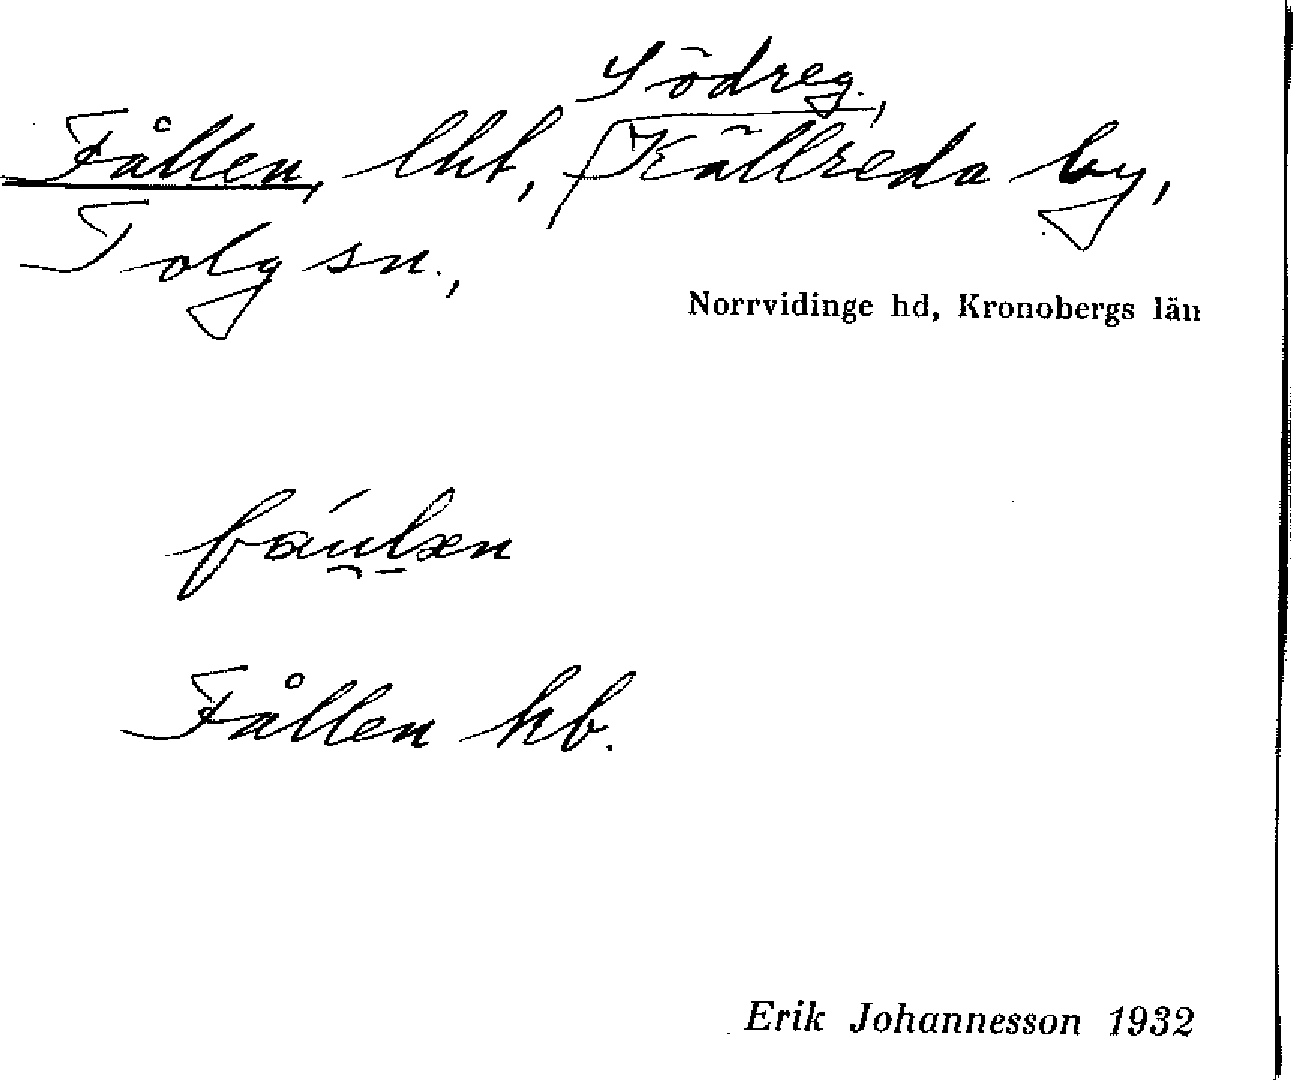 Södreg.,
Fållen, lht, Källreda by,
Tolg sn.,
Norrvidinge hd, Kronobergs län
Fållen hb.
Erik Johannesson 1932